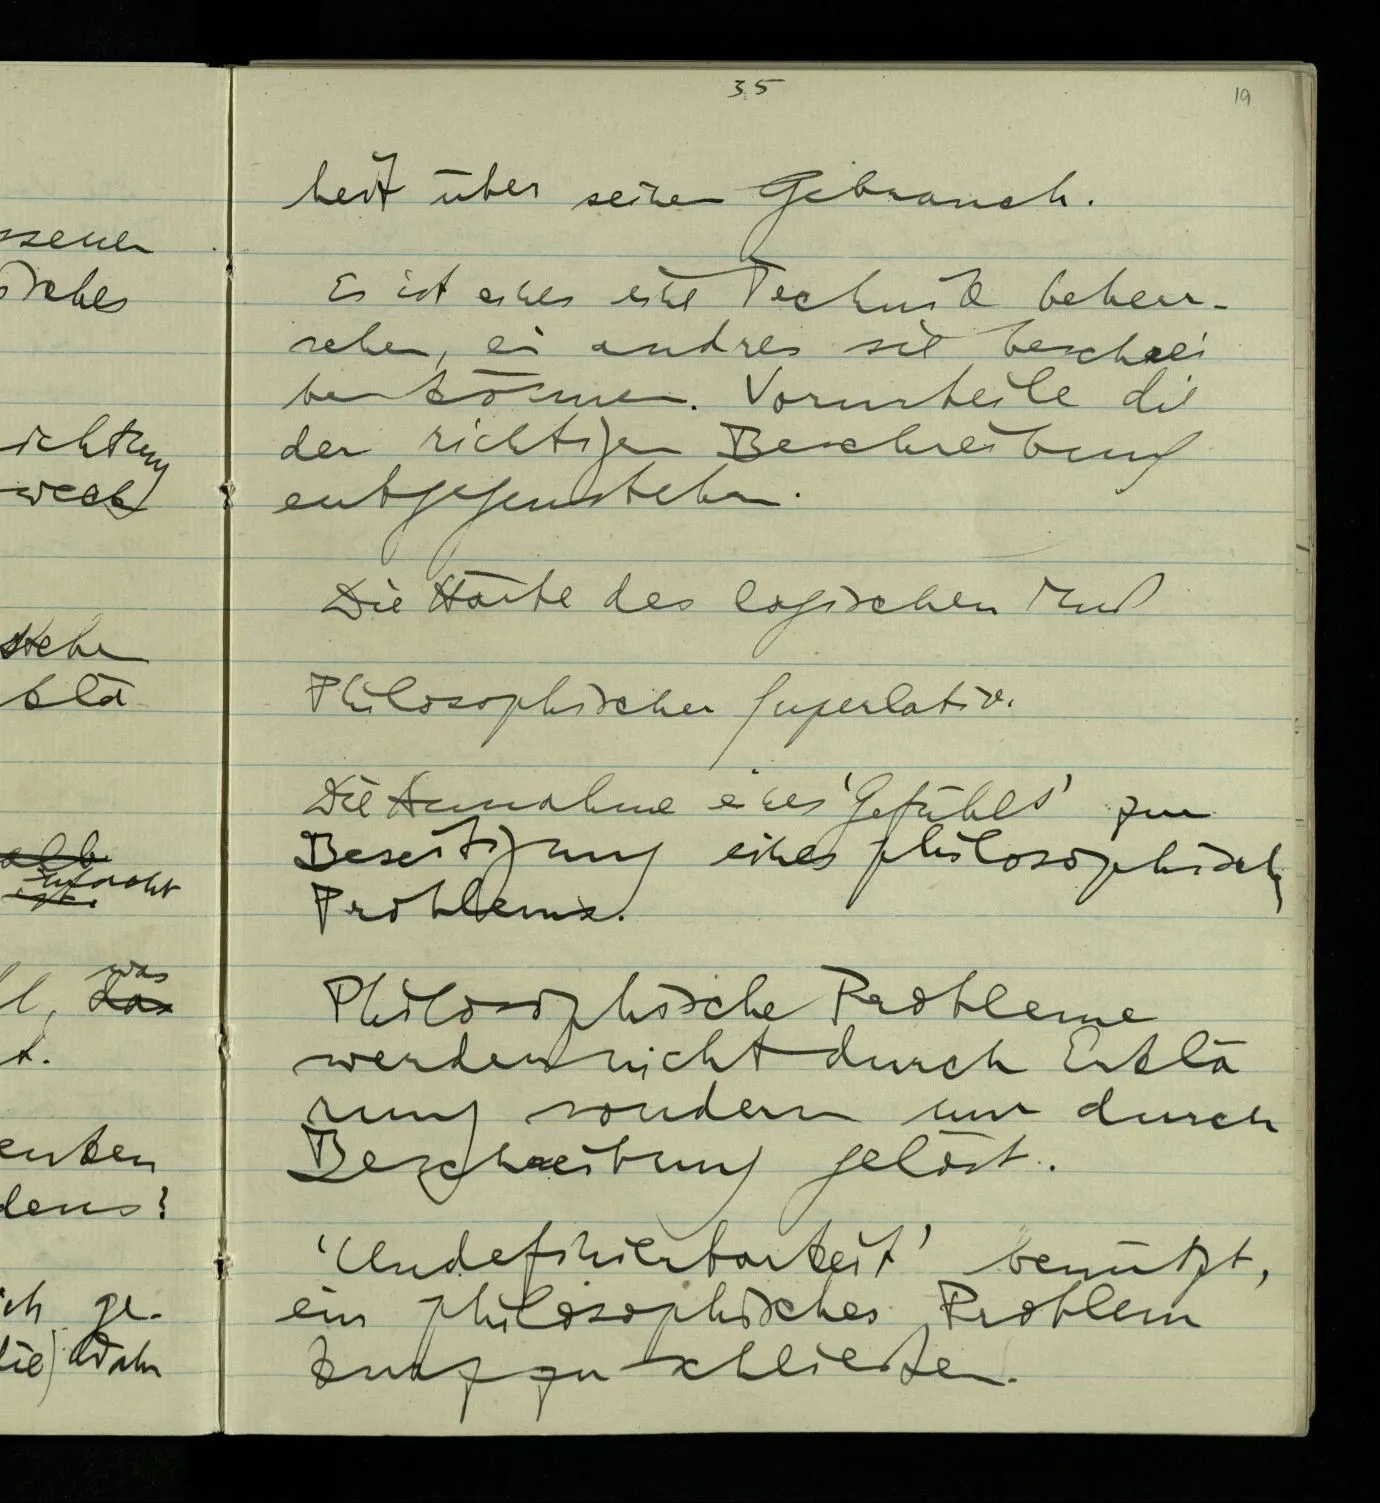 35
19
heit über seinen Gebrauch.
Es ist eines eine Technik beherr-
schen, ein andres sie beschrei
ben können. Vorurteile die
der richtigen Beschreibung
entgegenstehen.
Die Härte des logischen Muß
Philosophischer Superlativ.
Die Annahme eines 'Gefühls' zur
Beseitigung eines philosophischen
Problems.
Philosophische Probleme
werden nicht durch Erklä
rung sondern nur durch
Beschreibung gelöst.
'Undefinierbarkeit' benützt,
ein philosophisches Problem
zu schließen.
ssenen
sches
ichtung
weck
stehen
klä
was
l, das
t.
enken
dens?
ich ge-
die) Wahr